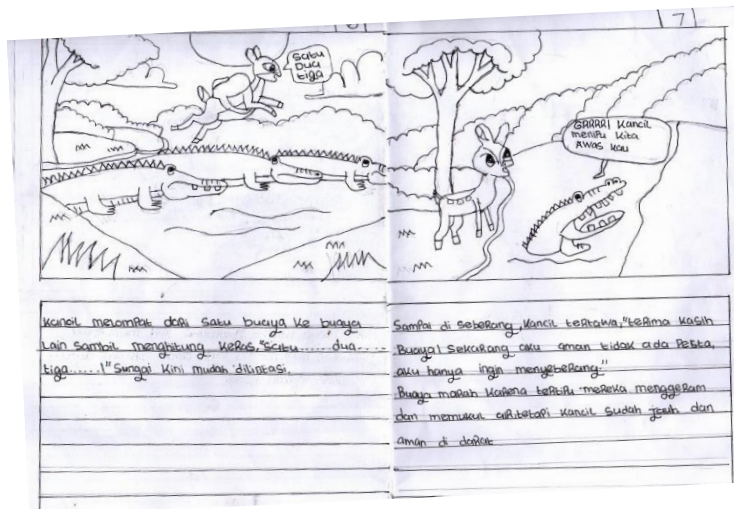 6
satu
dua
tiga
kancil melompat dari satu buaya ke buaya
lain sambil menghitung keras, "satu......dua....
tiga......!" Sungai kini mudah dilintasi.
7
GRRRR! Kancil
menipu kita
AWAS kau
Sampai di seberang, kancil tertawa, "terima kasih
Buaya! sekarang aku aman tidak ada pesta,
aku hanya ingin menyeberang."
Buaya marah karena tertipu mereka menggeram
dan memukul air, tetapi kancil sudah jauh dan
aman di darat